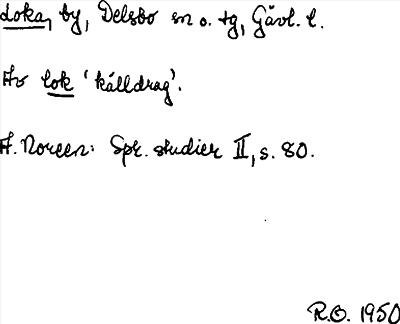 Loka, by, Delsbo sn o. tg, Gävl. l.
Av lok 'källdrag'.
A. Noreen: Spr. studier II, s. 80.
R.O. 1950